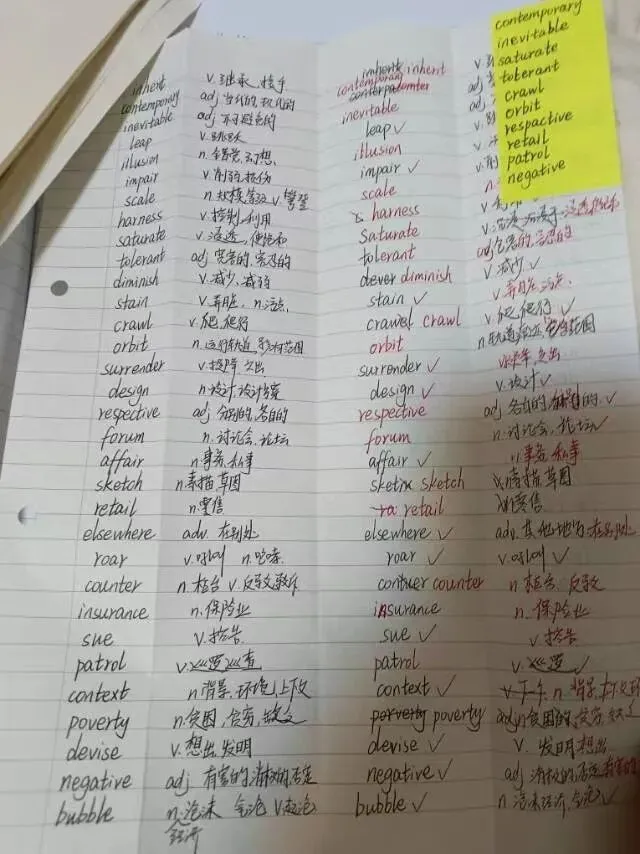 contemporary
inevitable
saturate
toterant
crawl
orbit
respactive
retail
patrol
negative
inherit v. 继承, 接手 inherit inherit
contemporary adj 当代的, 现代的 contemporary
inevitable adj 不可避免的 inevitable
leap v. 跳跃 leap ✓
illusion n. 错觉, 幻想 illusion
impair v. 削弱, 损伤 impair ✓
scale n. 规模, 等级 v. 攀登 scale
harness v. 控制, 利用 harness
saturate v. 浸透, 使饱和 saturate
tolerant adj 宽容的, 容忍的 tolerant adj 宽容的, 容忍的
diminish v. 减少, 减弱 diminish v. 减少 ✓
stain v. 弄脏, n. 污点, stain ✓ v. 弄脏, 污点,
crawl v. 爬, 爬行 crawel crawl v. 爬, 爬行 ✓
orbit n. 运行轨道, 影响范围 orbit n. 轨道
surrender v. 投降 交出 surrender ✓
design n. 设计, 设计方案 design ✓ v. 设计 ✓
respective adj 分别的, 各自的 respective adj 各自的, 分别的 ✓
forum n. 讨论会, 论坛 forum n. 讨论会, 论坛 ✓
affair n 事务, 私事 affair ✓ n 事务, 私事
sketch n. 素描 草图 sketch 素描 草图
retail n. 零售 ra retail 零售
elsewhere adv. 在别处 elsewhere ✓ adv. 其他地方, 在别处
roar v. 吼叫 n. 咆哮 roar ✓ v. 吼叫 ✓
counter n. 柜台 v. 反驳 contuer counter n 柜台, 反驳
insurance n. 保险业 insurance n. 保险业
sue v. 控告 sue ✓ v. 控告
patrol v. 巡逻 巡查 patrol v. 巡逻 ✓
context n 背景, 环境, 上下文 context ✓ n. 背景
poverty n. 贫困, 贫穷, 缺乏 porverty poverty
devise v. 想出, 发明 devise ✓ v. 发明 想出
negative adj 有害的, 消极的, 否定 negative ✓ adj 消极的, 否定 有害的
bubble n. 泡沫 气泡 bubble ✓ n 泡沫 经济, 气泡 ✓
经济